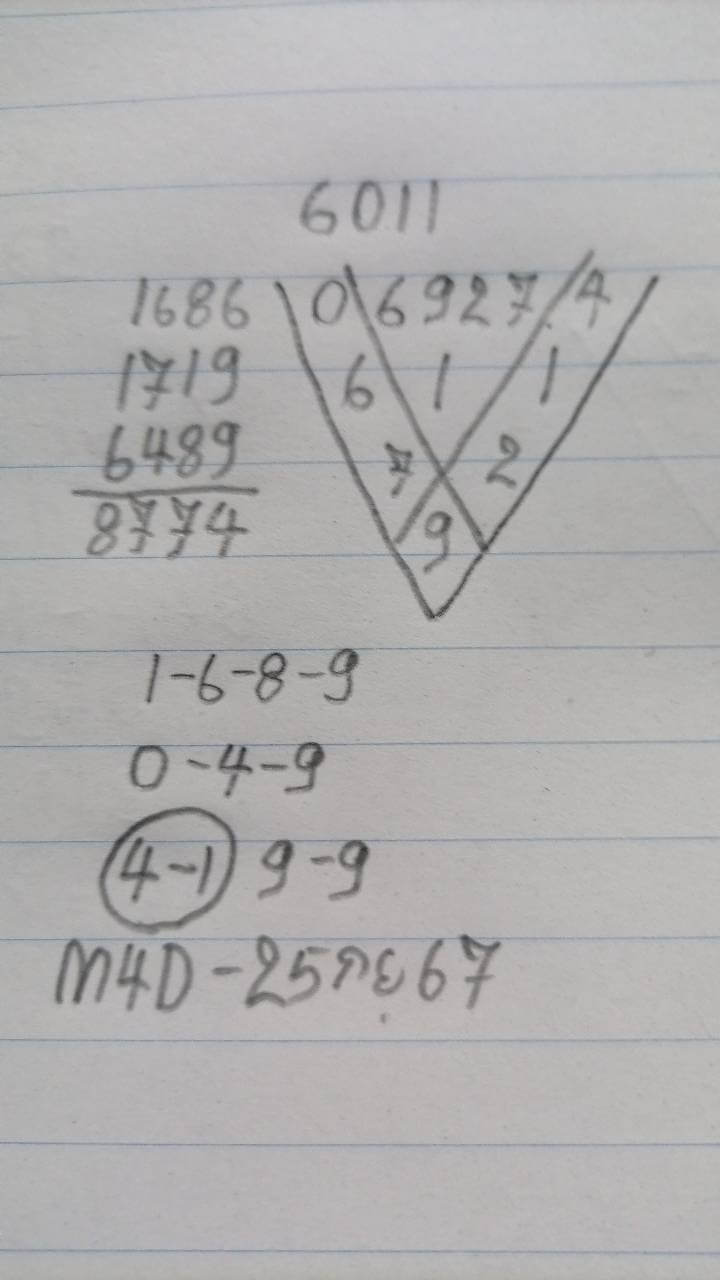 6011
1686 0 6 9 2 7 4
1719 6 1 1
6489 7 2
8774 9
1-6-8-9
0-4-9
4-1 9-9
M4D-25 67